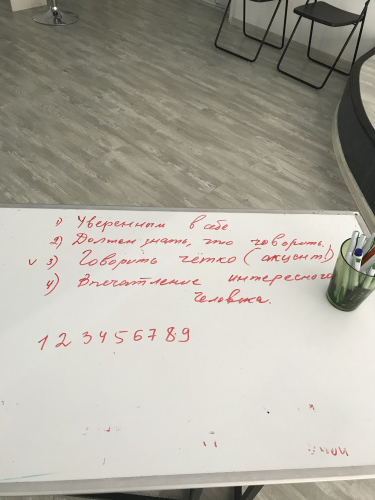 1) Уверенным в себе
2) Должен знать, что говорить.
v 3) Говорить чётко (акцент)
4) Впечатление интересного
человека.
1 2 3 4 5 6 7 8 9